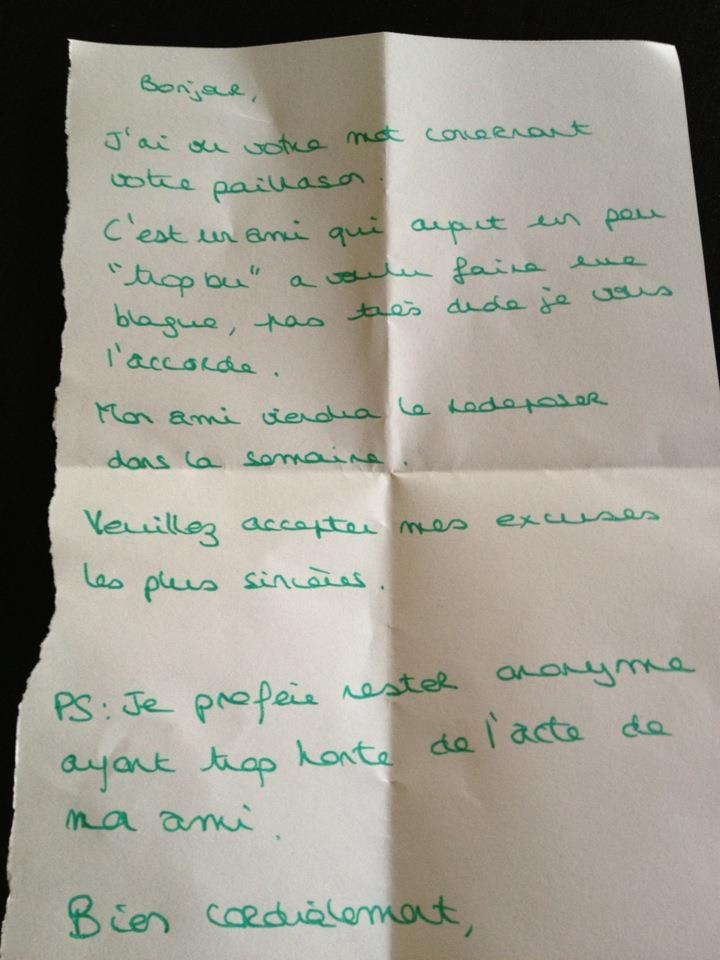 Bonjour,
J'ai vu votre mot concernant
votre paillason.
C'est un ami qui ayant un peu
"trop bu" a voulu faire une
blague, pas très drole je vous
l'accorde.
Mon ami viendra le redeposer
dans la semaine.
Veuillez accepter mes excuses
les plus sincères.
PS: Je prefère rester anonyme
ayant trop honte de l'acte de
mon ami.
Bien cordialement,